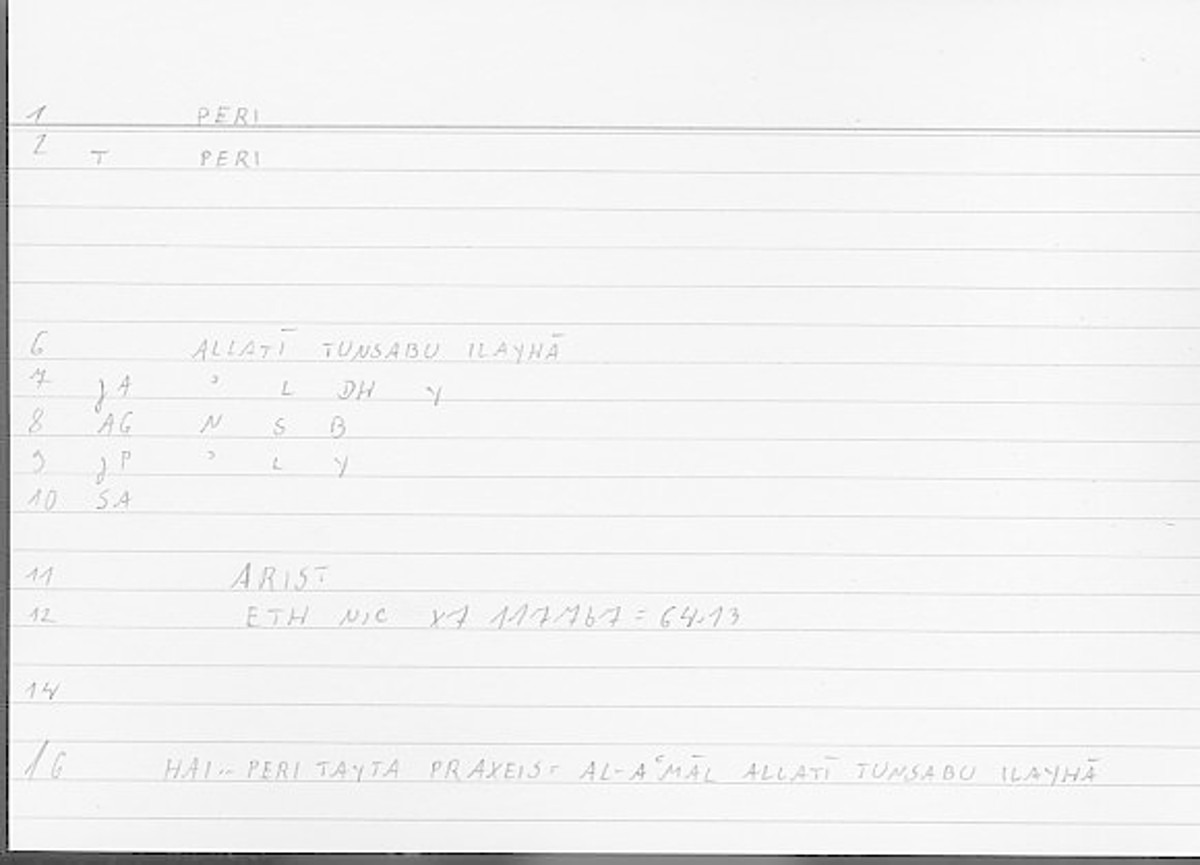 1 PERI
2 T PERI
6 ALLATĪ TUNSABU ILAYHĀ
7 jA ʾ L DH Y
8 AG N S B
9 jP ʾ L Y
10 SA
11 ARIST
12 ETH NIC X7 1177b7 = 64.13
14
16 HAI.. PERI TAYTA PRAXEIS = AL-AʿMĀL ALLATĪ TUNSABU ILAYHĀ